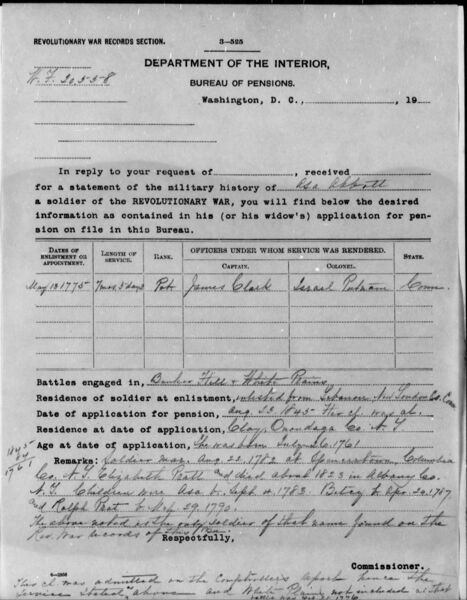 REVOLUTIONARY WAR RECORDS SECTION.
3—525
W. F. 20558
DEPARTMENT OF THE INTERIOR,
BUREAU OF PENSIONS.
Washington, D. C., , 19
In reply to your request of , received
for a statement of the military history of Asa Abbott
a soldier of the REVOLUTIONARY WAR, you will find below the desired
information as contained in his (or his widow's) application for pen-
sion on file in this Bureau.
DATES OF ENLISTMENT OR APPOINTMENT.
LENGTH OF SERVICE.
RANK.
OFFICERS UNDER WHOM SERVICE WAS RENDERED.
CAPTAIN.
COLONEL.
STATE.
May 13 1775 7 mos 3 days James Clark Israel Putnam Conn.
Battles engaged in, Bunker Hill & White Plains
Residence of soldier at enlistment, enlisted from Lebanon New London Co. Conn
Date of application for pension, Aug. 23. 1845 Her cf.
Residence at date of application, Clay Onondaga Co. N.Y.
Age at date of application, She was born July 16 1761
1845
84
1761
Remarks: Soldier mar. Aug. 22, 1782 at Spencertown, Columbia
Co. N.Y. Elizabeth Pratt and died about 1823 in Albany Co.
N.Y. Children were Asa b. Sept 4. 1783. Betsy b. 20, 1787
and Ralph b. Sep. 29. 1790.
The above noted is the only soldier of that name found on the
Rev. War records of this Bu.
Respectfully,
Commissioner.
6—2956
This cl. was admitted on the Comptroller's report hence the
service stated above and White Plains not included as that
battle was Oct. 28, 1776